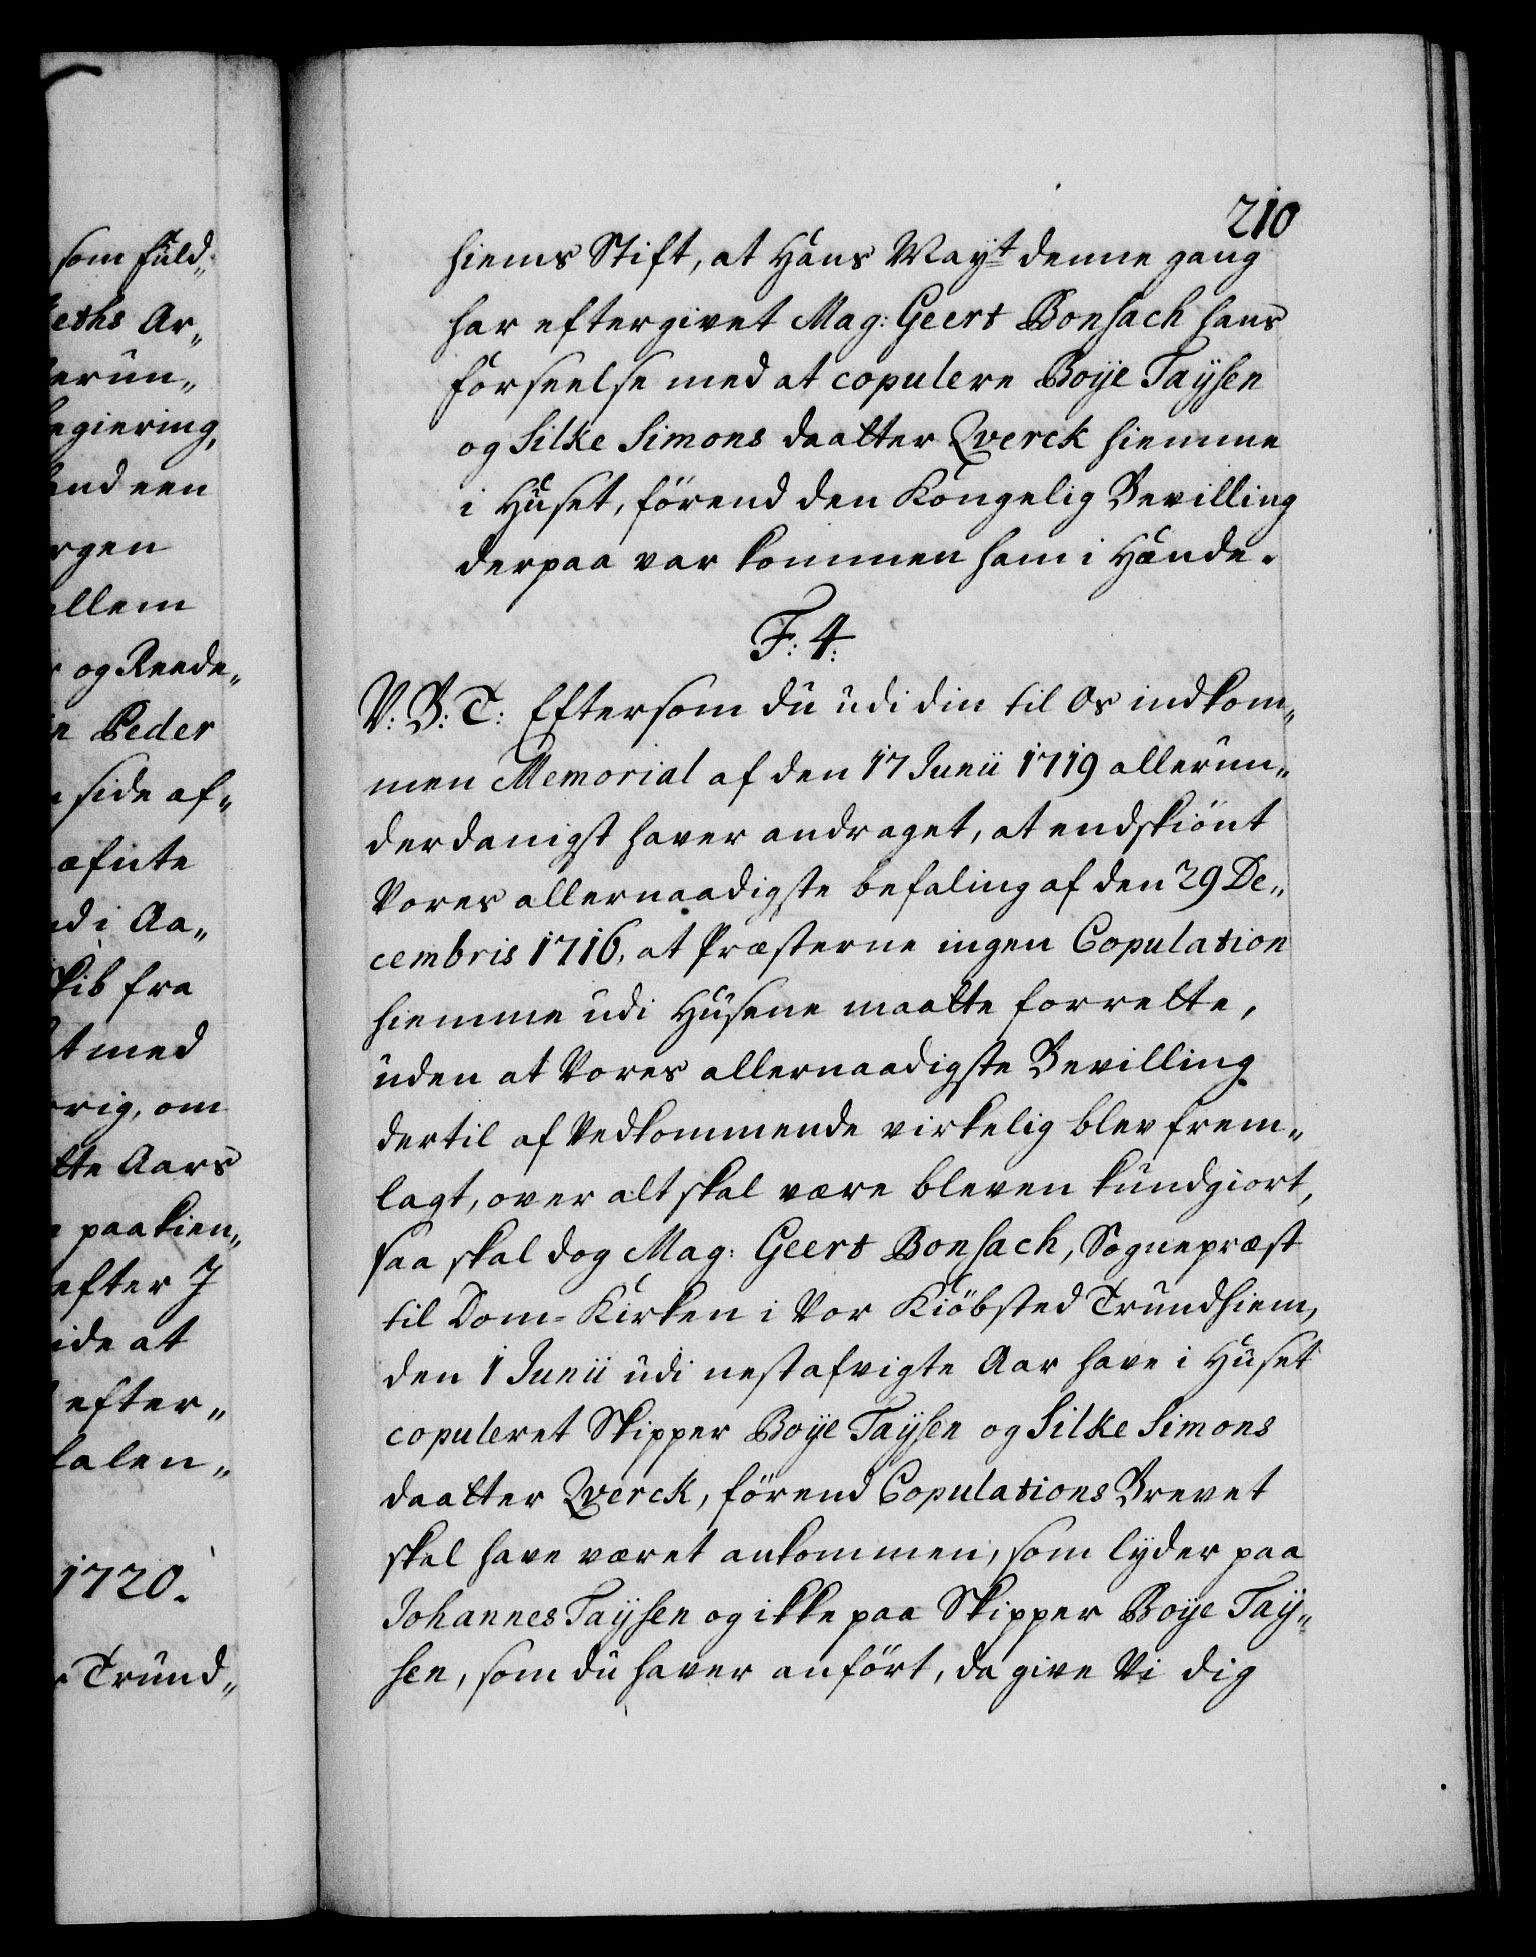 som fuld¬
eths Ar¬
erun¬
egiering,
end een
rgen
llem
r og Reede¬
n Peder
side af¬
æfnte
ud i Aa¬
kib fra
t med
rig, om
tte Aars
paakien¬
efter J
ide at
efter¬
talen¬
1720.
Trund¬
210
hiems Stift, at Hans Mayt denne gang
har eftergivet Mag: Geert Bonsach hans
forseelse med at copulere Boÿe Taÿsen
og Silke Simons daatter Qverck hiemme
i Huset, förend den Kongelig Bevilling
derpaa var kommen ham i Hænde.
F: 4.
V: B: T: Eftersom du udi din til Os indkom¬
men Memorial af den 17 Junii 1719 allerun¬
derdanigst haver andraget, at endskiönt
Vores allernaadigste befaling af den 29 De¬
cembris 1716, at Præsterne ingen Copulation
hiemme udi Husene maatte forrette,
uden at Vores allernaadigste Bevilling
dertil af Vedkommende virkelig blev frem¬
lagt, over alt skal være bleven kundgiort,
saa skal dog Mag: Geert Bonsach, Sognepræst
til Dom-Kirken i Vor Kiöbsted Trundhiem,
den 1 Junii udi nestafvigte Aar have i Huset
copuleret Skipper Boÿe Taÿsen og Silke Simons
daatter Qverck, förend Copulations Brevet
skal have været ankommen, som lyder paa
Johannes Taÿsen og ikke paa Skipper Boÿe Taÿ¬
sen, som du haver anfört, da give Vi dig